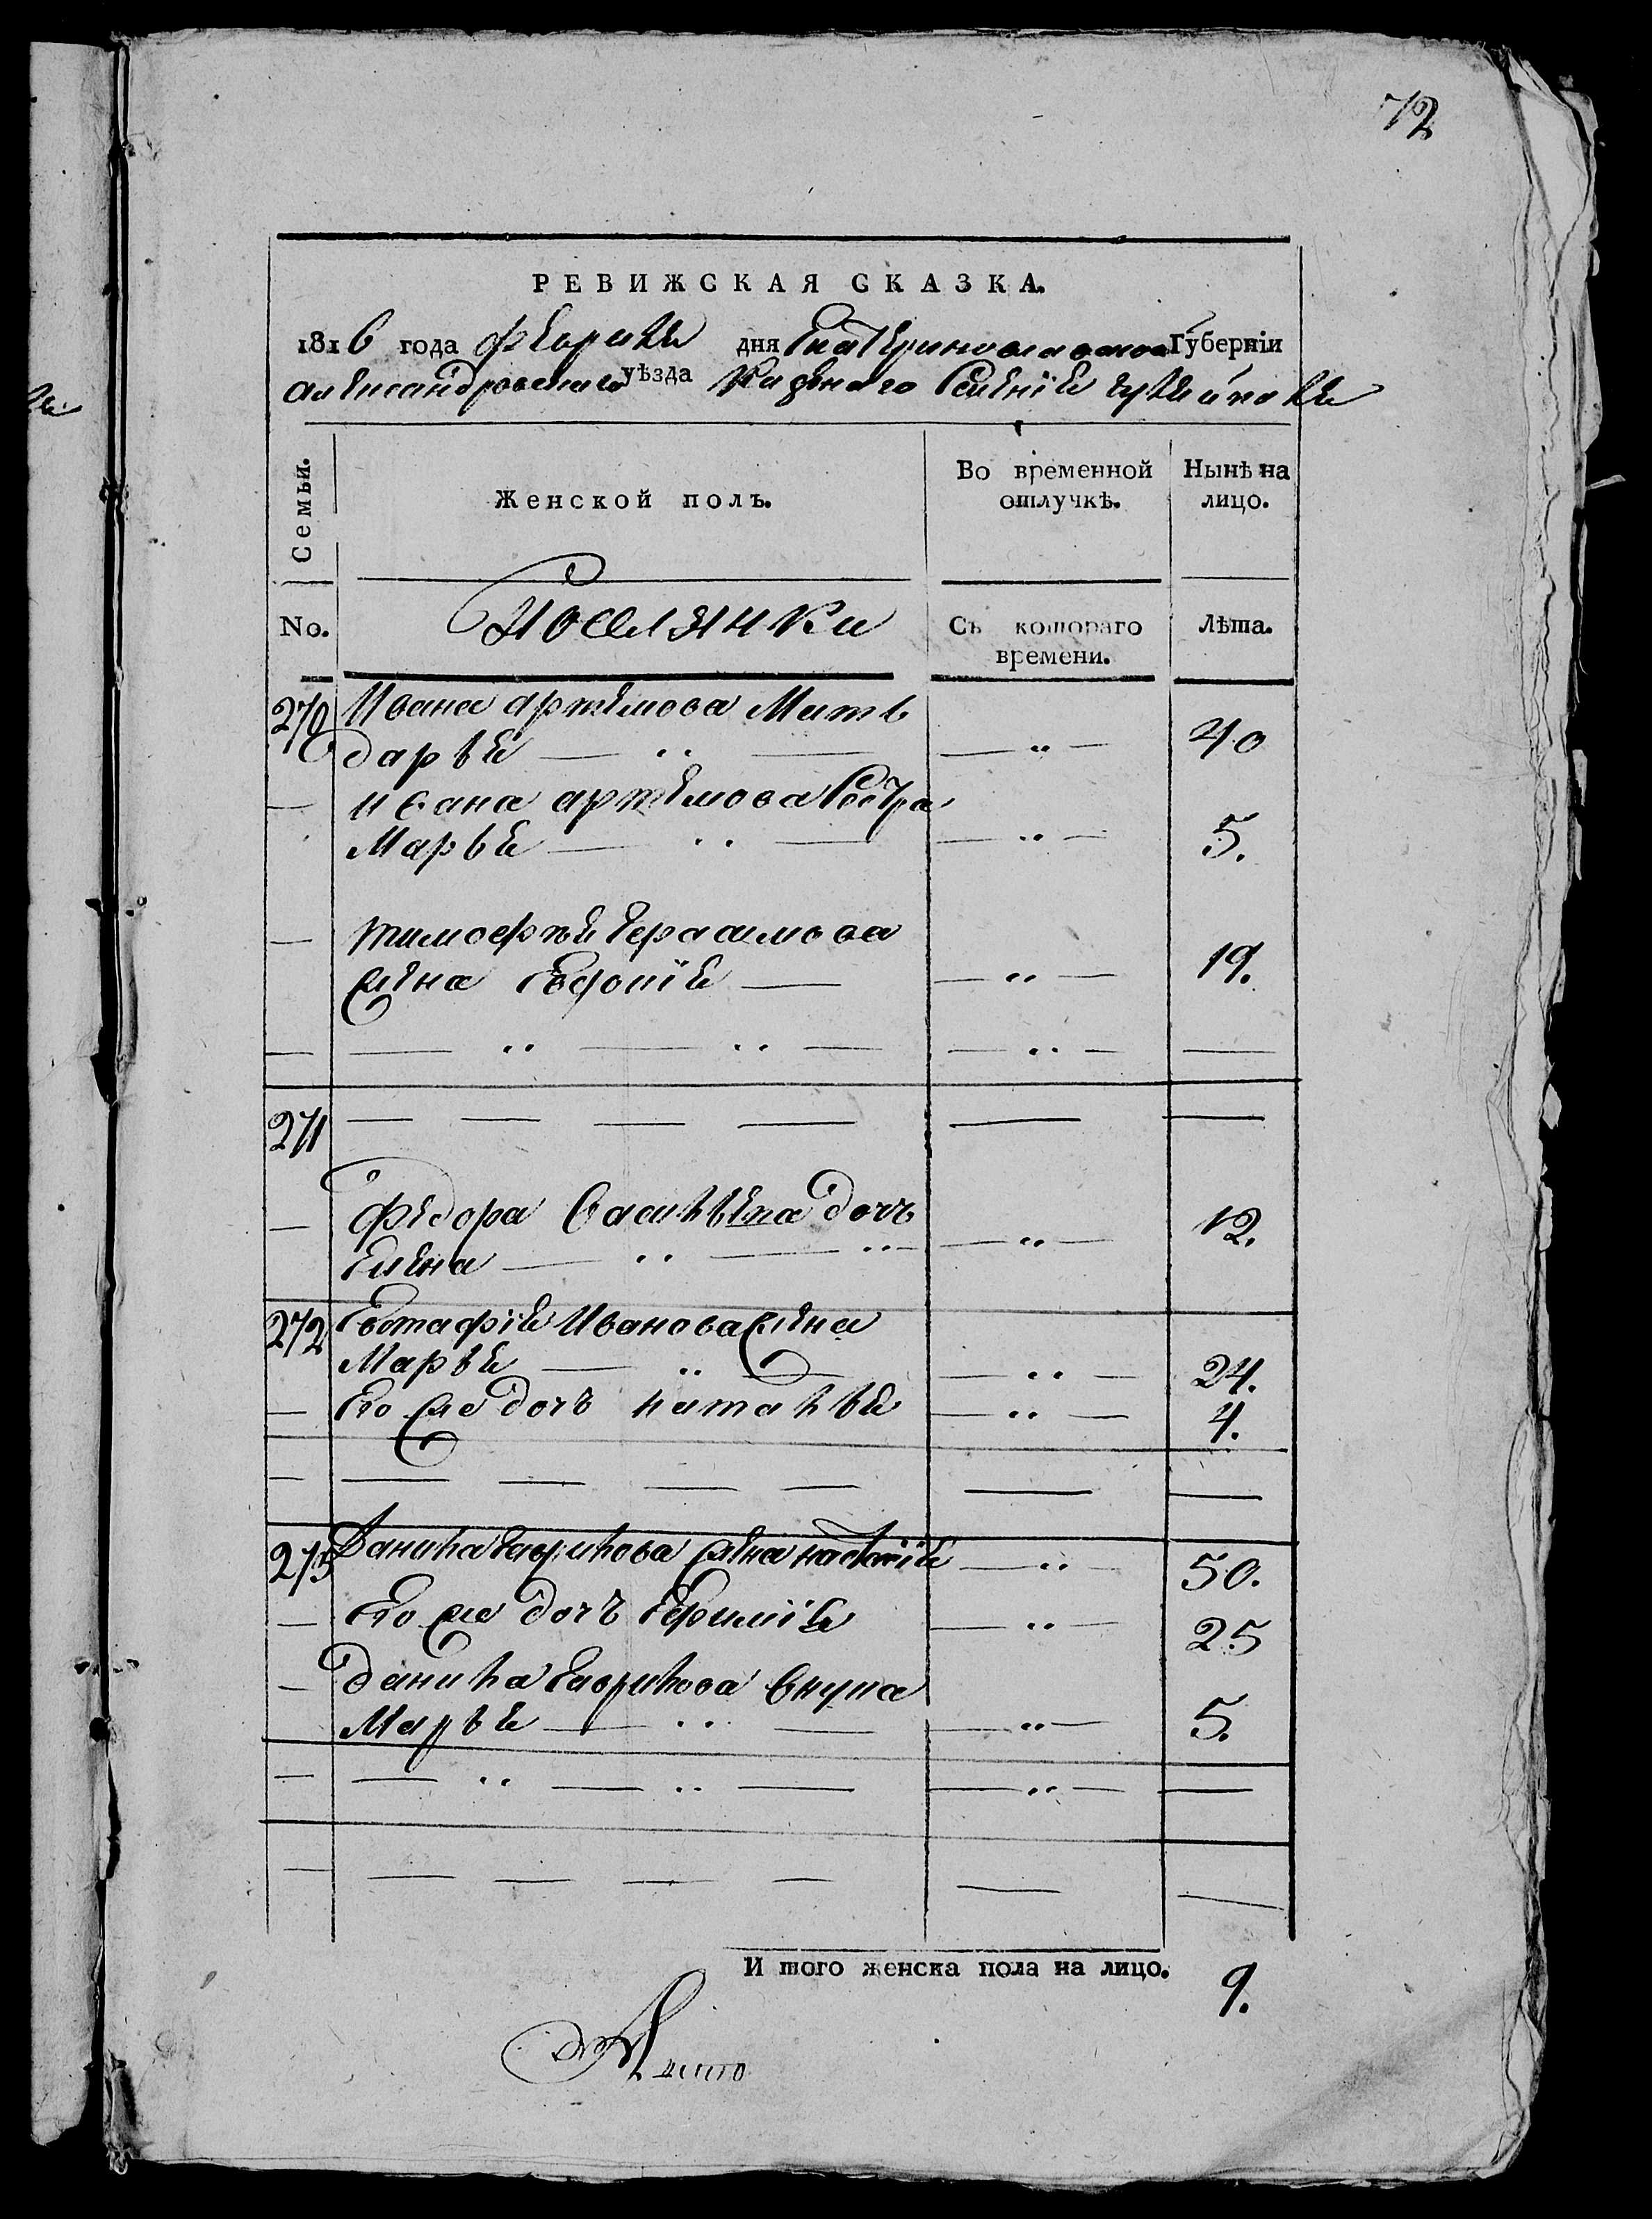 72
РЕВИЖСКАЯ СКАЗКА.
1816 года февраля дня Екатеринославской Губернїи
Александровского уѣзда Казеного Селенїя Гуляйполя
Семьи.
Женской полъ.
Во временной отлучкѣ.
Нынѣ на лицо.
No.
Поселянки
Съ котораго времени.
Лѣта.
270 Ивана Артемова Мать
Дарья — " — — " — 40
— Ивана Артемова Сестра
Марья — " — — " — 5.
— Тимофея Герасимова
жена Евдокїя — — " — 19.
— — " — " — — " — —
271 — — — — — —
— Федора Васильева дочь
Елена — " — " — — " — 12.
272 Евстафїя Иванова жена
Марья — " — — " — 24.
— Его же дочь Наталья — " — 4.
— — — — — — —
273 Данила Гаврилова жена Настасїя — " — 50.
— Его же дочь Ефимїя — " — 25
— Данила Гаврилова внука
Марья — " — — " — 5.
— — " — " — — " — —
— — — — — — —
И того женска пола на лицо. 9.